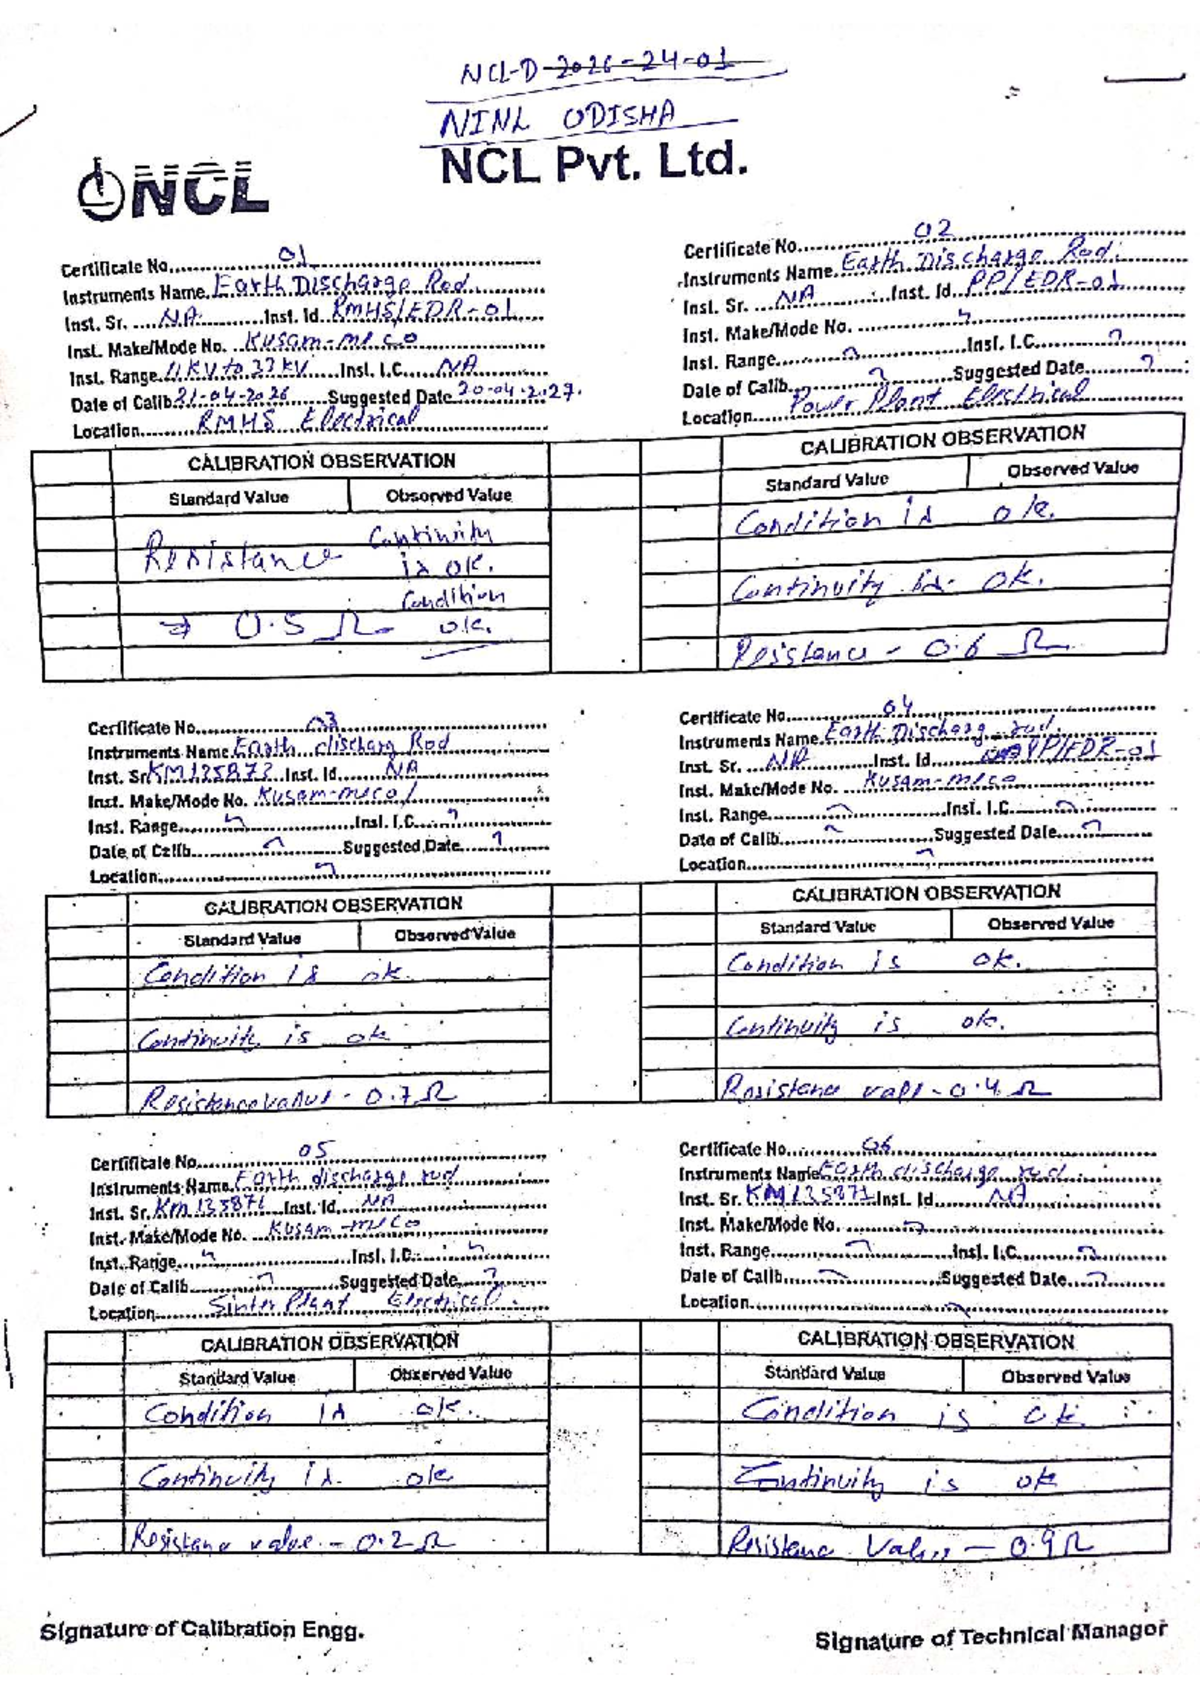 NCL-D-2026-24-01
NINL ODISHA
NCL Pvt. Ltd.
NCL
Certificate No. 01
Instruments Name. Earth Discharge Rod
Inst. Sr. NA Inst. Id. RMHS/EDR-01
Inst. Make/Mode No. Kusam-meco
Inst. Range 11 KV to 33 KV Inst. I.C. NA
Date of Calib. 21-04-2026 Suggested Date 20-04-2027.
Location RMHS Electrical
CALIBRATION OBSERVATION
Standard Value Observed Value
Resistance Continuity
is ok.
Condition
→ 0.5 Ω ok.
Certificate No. 02
Instruments Name. Earth Discharge Rod.
Inst. Sr. NA Inst. Id. PP/EDR-01
Inst. Make/Mode No. 〃
Inst. Range. 〃 Inst. I.C. 〃
Date of Calib. 〃 Suggested Date 〃
Location Power Plant Electrical
CALIBRATION OBSERVATION
Standard Value Observed Value
Condition is ok.
Continuity is ok.
Resistance - 0.6 Ω
Certificate No. 03
Instruments Name. Earth discharg Rod
Inst. Sr. KM135873 Inst. Id. NA
Inst. Make/Mode No. Kusam-meco
Inst. Range. 〃 Inst. I.C. 〃
Date of Calib. 〃 Suggested Date 〃
Location 〃
CALIBRATION OBSERVATION
Standard Value Observed Value
Condition is ok.
Continuity is ok
Resistance - 0.7 Ω
Certificate No. 04
Instruments Name. Earth Discharg rod.
Inst. Sr. NA Inst. Id. PP/EDR-01
Inst. Make/Mode No. Kusam-meco
Inst. Range. 〃 Inst. I.C. 〃
Date of Calib. 〃 Suggested Date. 〃
Location 〃
CALIBRATION OBSERVATION
Standard Value Observed Value
Condition is ok.
Continuity is ok.
- 0.4 Ω
Certificate No. 05
Instruments Name. Earth discharge rod
Inst. Sr. KM 135871 Inst. Id. NA
Inst. Make/Mode No. Kusam-meco
Inst. Range. 〃 Inst. I.C. 〃
Date of Calib. 〃 Suggested Date. 〃
Location Sinter Plant Electrical.
CALIBRATION OBSERVATION
Standard Value Observed Value
Condition is ok.
Continuity is ok
value - 0.2 Ω
Certificate No. 06
Instruments Name Earth discharge rod
Inst. Sr. KM135971 Inst. Id. NA
Inst. Make/Mode No. 〃
Inst. Range. 〃 Inst. I.C. 〃
Date of Calib. 〃 Suggested Date. 〃
Location 〃
CALIBRATION OBSERVATION
Standard Value Observed Value
Condition is ok
Continuity is ok
- 0.9 Ω
Signature of Calibration Engg.
Signature of Technical Manager